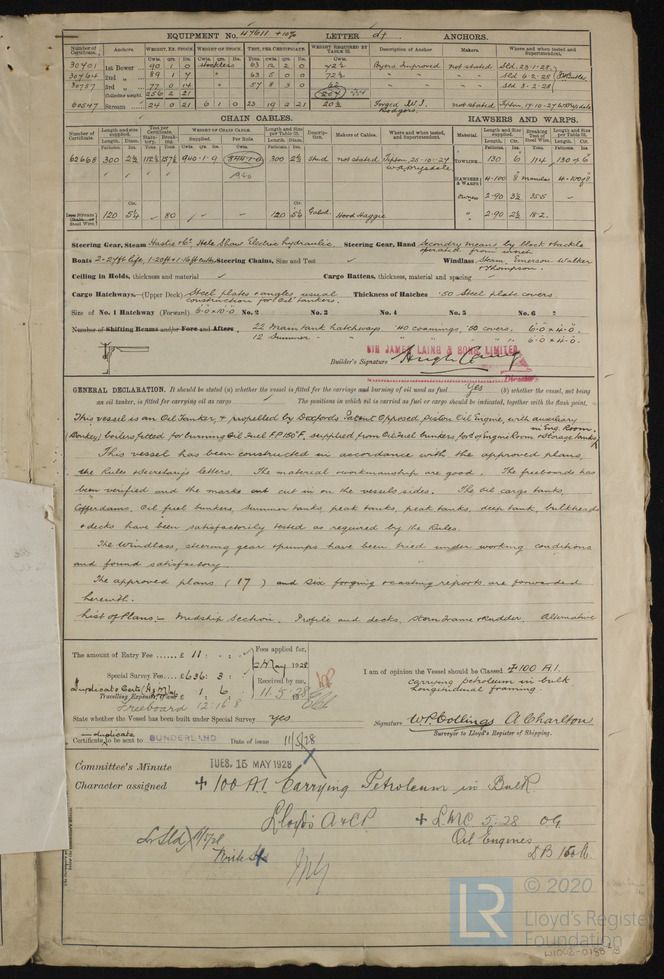 EQUIPMENT No. 47611 +10% LETTER d† ANCHORS.
Number of Certificate. Anchors. WEIGHT, EX. STOCK. WEIGHT OF STOCK. TEST, PER CERTIFICATE. WEIGHT REQUIRED BY TABLE 22. Description of Anchor Makers. Where and when tested and Superintendent.
30701 1st Bower 90 1 0 Stockless 63 12 2 0 72½ Byers Improved not stated Sld. 23-1-28
30764 2nd „ 89 1 7 „ 63 5 0 0 72½ „ „ „ Sld 6-2-28
30757 3rd „ 77 0 14 „ 57 8 3 0 62 „ „ „ Sld 3-2-28
Collective weight. 256 2 21
60547 Stream 24 0 21 6 1 0 23 19 2 21 20½ Forged W.I. Rodgers. not stated Tipton. 19-10-27
CHAIN CABLES. HAWSERS AND WARPS.
Number of Certificate. Length and size supplied. Test per Certificate. WEIGHT OF CHAIN CABLE. Length and size per Table 22. Description. Makers of Cables. Where and when tested, and Superintendent. Material. Length and Size supplied. Breaking Test of Steel Wire. Length and Size per Table 22.
62668 300 2⅝ 940-1-9 300 2⅝ Stud not stated Tipton 25-10-27 TOWLINE 130 6 114 130 × 6
HAWSERS & WARPS 4-100 8 manilas 4-100 × 8
2-90 3½ 35.5
Steel Wire. 120 5¼ 80 120 5¼ Galvd. Hood Haggie 2-90 2½ 18.2
Steering Gear, Steam Hastie & Co. Hele Shaw Electric hydraulic. Steering Gear, Hand Secondary means by block & tackle operated from winch
Boats 2-27ft life, 1-20ft + 1-16ft Steering Chains, Size and Test ✓ Windlass Steam. Emerson Walker & Thompson.
Ceiling in Holds, thickness and material ✓ Cargo Battens, thickness, material and spacing ✓
Cargo Hatchways.—(Upper Deck) Steel plates & angles, usual construction for oil tankers. Thickness of Hatches .50 Steel plate covers.
Size of No. 1 Hatchway (Forward) 6.0 × 10.0 No. 2 No. 3 No. 4 No. 5 No. 6
Number of Shifting Beams and/or Fore and Afters, 22 Main tank hatchways .40 coamings, .50 covers. 6.0 × 4.0
12 Summer „ „ „ „ 6.0 × 4.0
SIR JAMES LAING & SONS, LIMITED
Builder's Signature Hugh Laing
Director
GENERAL DECLARATION. It should be stated (a) whether the vessel is fitted for the carriage and burning of oil used as fuel Yes (b) whether the vessel, not being
an oil tanker, is fitted for carrying oil as cargo ✓ The positions in which oil is carried as fuel or cargo should be indicated, together with the flash point.
This vessel is an Oil Tanker, & propelled by Doxfords Patent Opposed Piston Oil Engine, with auxiliary in Eng. Room.
(Donkey) boilers fitted for burning Oil Fuel F.P. 150°F, supplied from Oil Fuel bunkers, fore of Engine Room & Storage tanks
This vessel has been constructed in accordance with the approved plans,
the Rules & Secretary's letters. The material & workmanship are good. The freeboards has
been verified and the marks cut in on the vessels sides. The oil cargo tanks,
Cofferdams, Oil fuel bunkers, summer tanks, peak tanks, deep tank, bulkheads
& decks have been satisfactorily tested as required by the Rules.
The windlass, steering gear & pumps have been tried under working conditions
and found satisfactory.
The approved plans (17) and six forging & casting reports are forwarded
herewith.
List of Plans:- Midship Section. Profile and decks, Stern Frame & Rudder, Alternative
The amount of Entry Fee ...... £ 11 : : Fees applied for,
May 1928
Special Survey Fee.... £636 : 3 : Received by me,
Duplicate Certs (H&M) 1 6 11.5.28
Travelling Expenses, if any £
Freeboard 12.16.8
I am of opinion the Vessel should be Classed ✠ 100 A1.
carrying petroleum in bulk
Longitudinal framing.
State whether the Vessel has been built under Special Survey yes
Signature W.P. Collings A Charlton
Surveyor to Lloyd's Register of Shipping.
duplicate
Certificate to be sent to SUNDERLAND Date of issue 11/5/28
Committee's Minute TUES. 15 MAY 1928
Character assigned ✠ 100 A1. Carrying Petroleum in Bulk
Lloyd's A & CP ✠ LMC 5.28 OG
Oil Engines
DB 150 lb
© 2020
LR Lloyd's Register
Foundation
W1002-0185